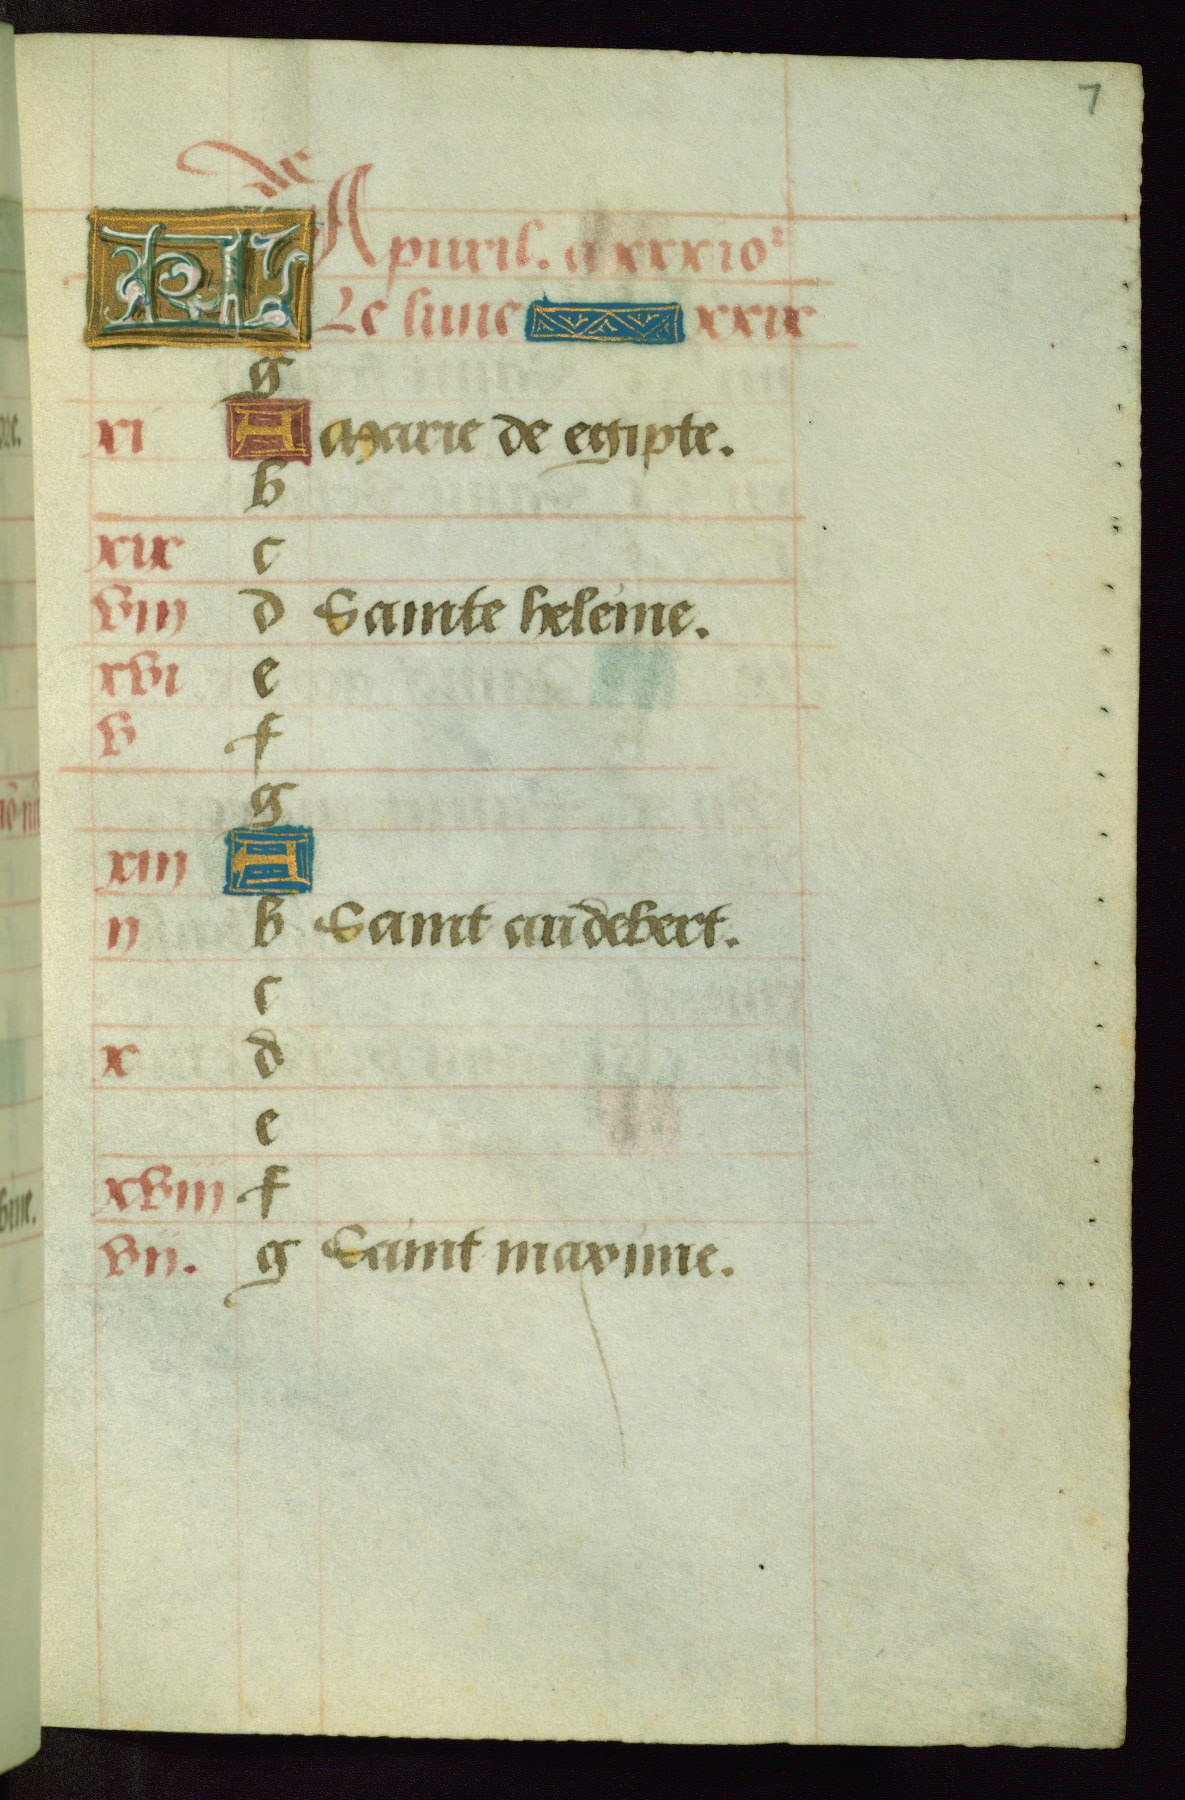 7
de
KL Apuril. a xxx io2
Le lune xxix
g
xi A Marie de egipte.
b
xix c
viii d Sainte heleine.
xvi e
v f
g
xiii A
ii b Saint audebert.
c
x d
e
xviii f
vii. g Saint maxime.